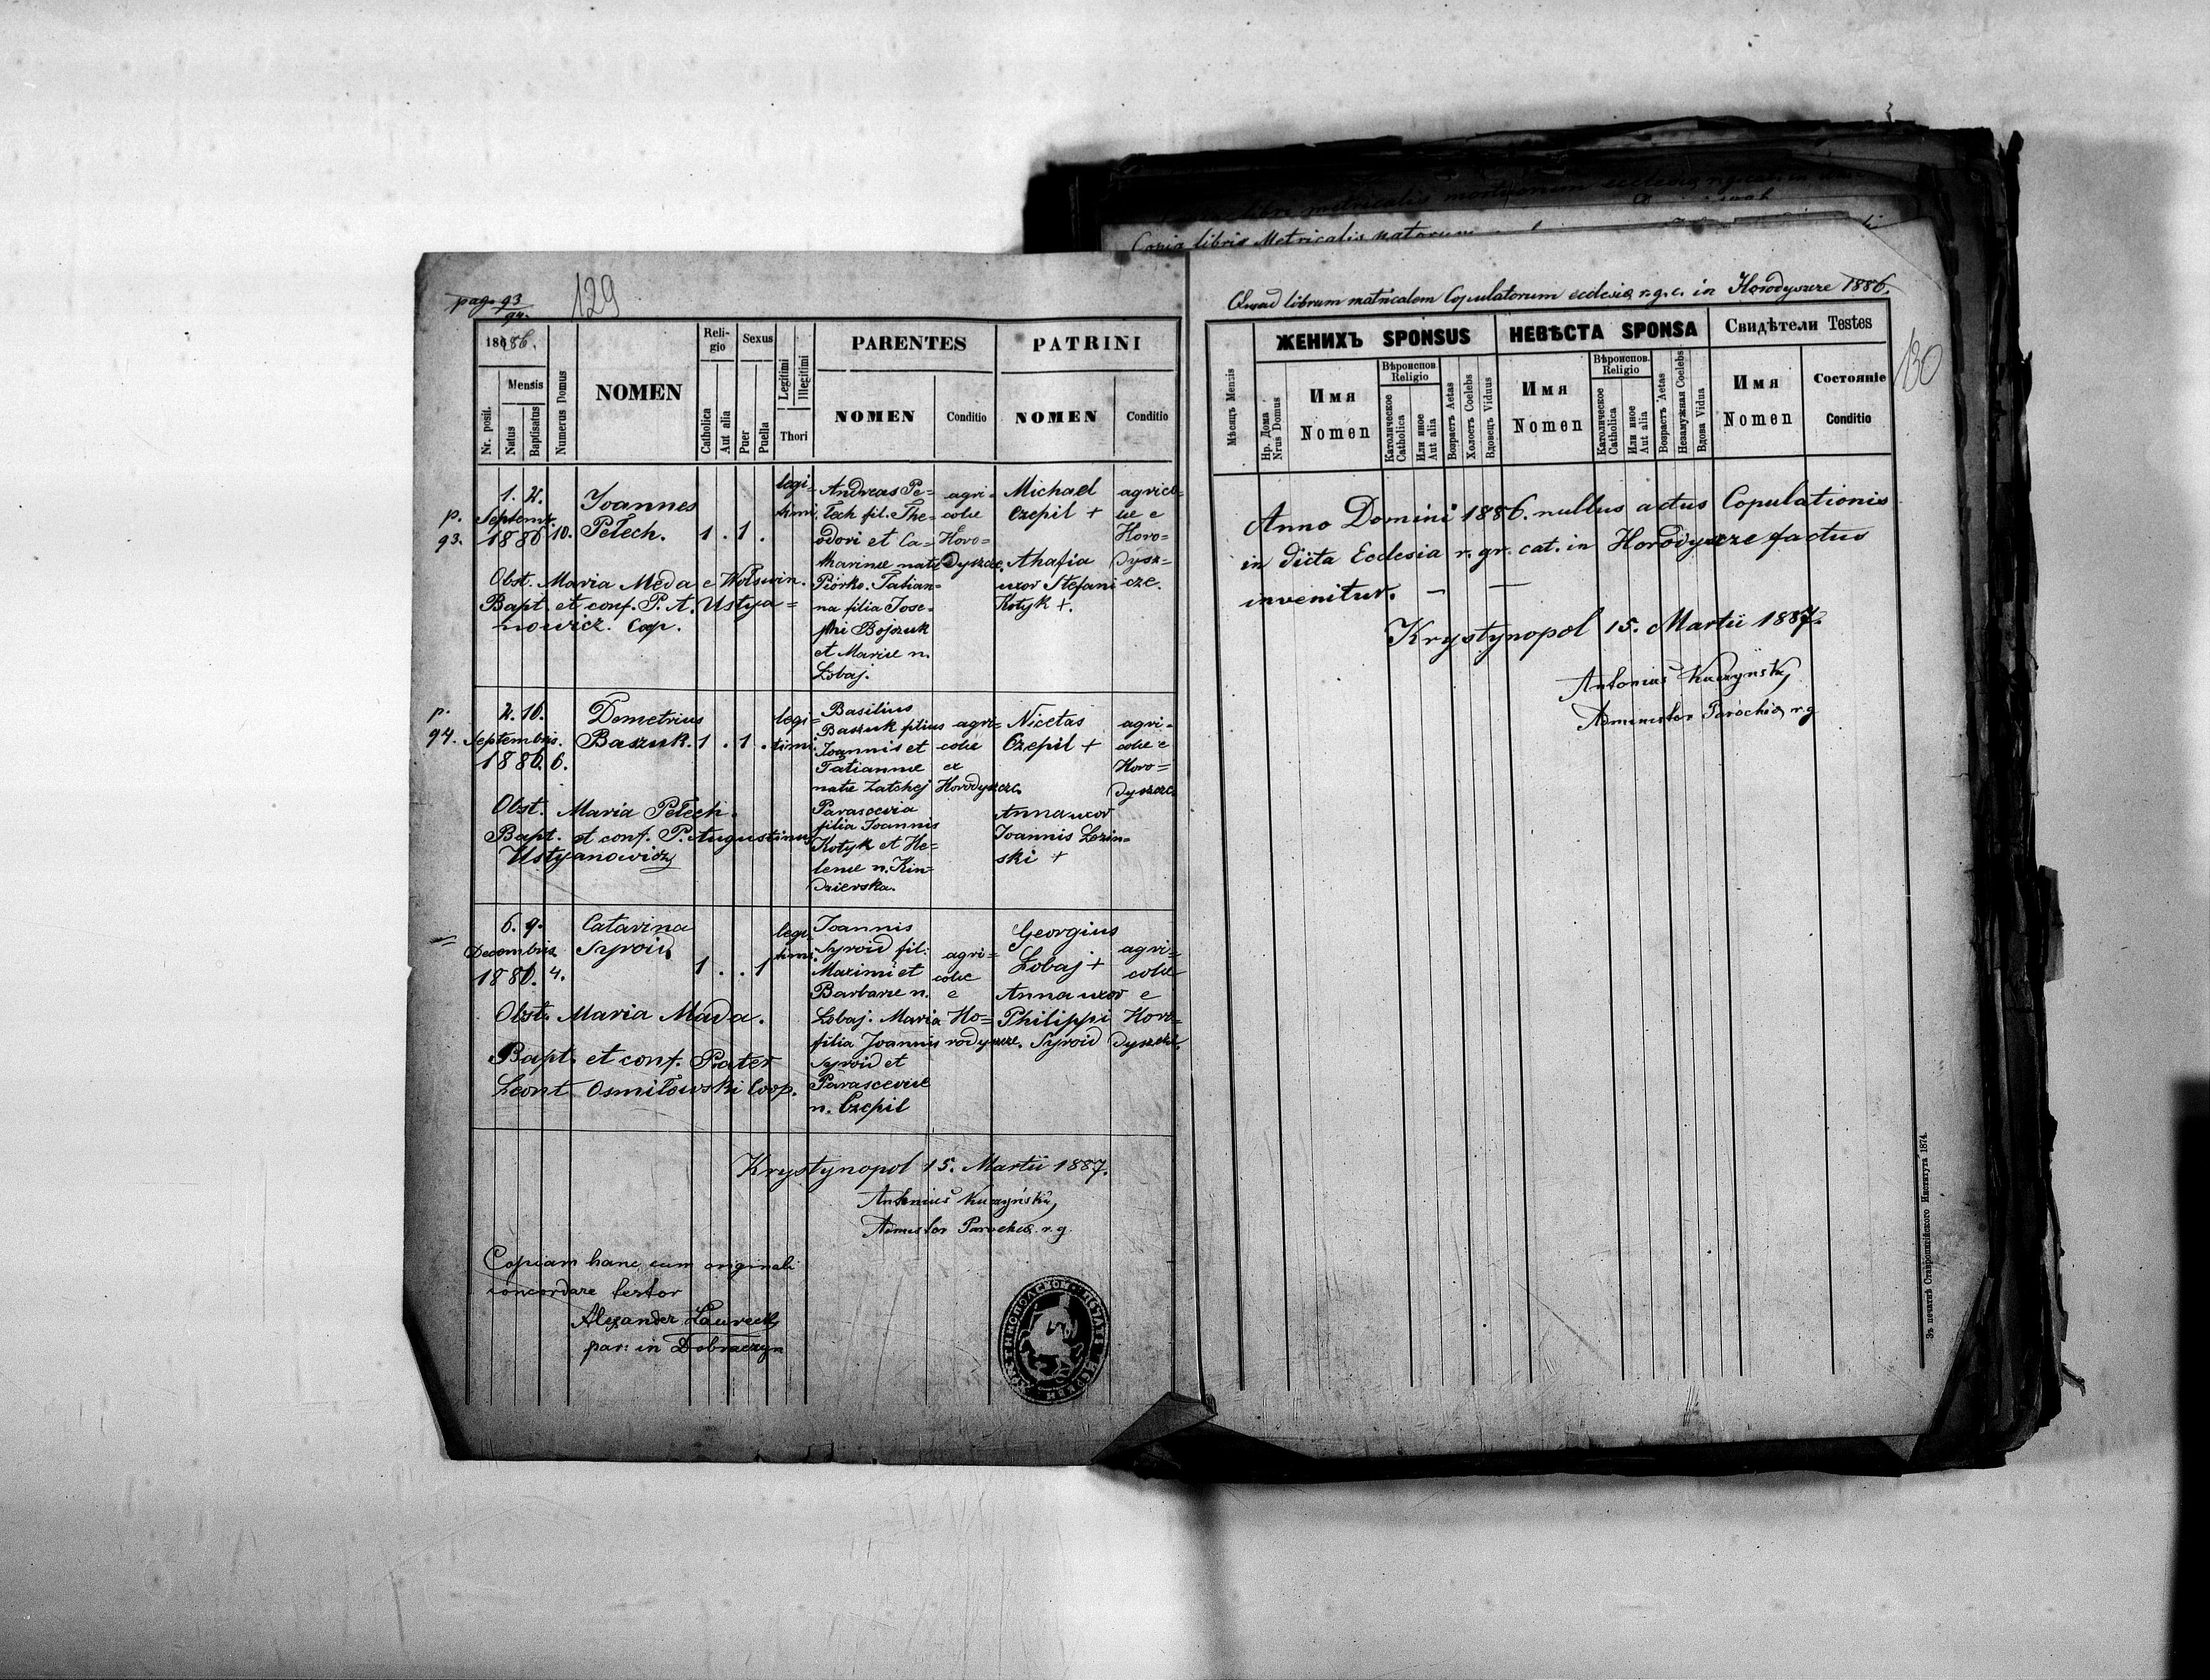 pag. 93
94.
129
1886.
Nr. posit.
Mensis
Natus
Baptisatus
Numerus Domus
NOMEN
Religio
Catholica
Aut alia
Sexus
Puer
Puella
Legitimi
Illegitimi
Thori
PARENTES
NOMEN
Conditio
PATRINI
NOMEN
Conditio
p.
93.
1. 2.
Septembr.
1886 10.
Joannes
Pełech. 1 . 1 .
legi=
timi.
Andreas Pe=
łech fil. The=
odori et Ca=
tharinæ natæ
Piórko. Tatian=
na filia Jose=
phi Bojszuk
et Mariæ n.
Łobaj.
agri=
colæ
Horo=
dyszcze.
Michael
Czepil +
Ahafia
uxor Stefani
Kotyk +.
agricol=
æ e
Horo=
dysz=
cze.
Obst. Maria Meda e Wolswin.
Bapt. et conf. P. A. Ustya=
nowicz. Coop.
p.
94.
2. 10.
Septembris.
1886. 6.
Demetrius
Baszuk. 1 . 1 .
legi=
timi
Basilius
Baszuk filius
Joannis et
Tatiannæ
natæ Zatchej
Parascevia
filia Joannis
Kotyk et He=
lenæ n. Kin=
dzierska.
agri=
colæ
ex
Horodyszcze.
Nicetas
Czepil +
Anna uxor
Joannis Lezin=
ski +
agri=
colæ e
Horo=
dyszcze.
Obst. Maria Pełech.
Bapt. et conf. P. Augustinus
Ustyanowicz
6. 9.
Decembris
1886. 4.
Catarina
Syroid
1 . . 1
legi
timi.
Joannis
Syroid fil.
Maximi et
Barbaræ n.
Łobaj. Maria
filia Joannis
Syroid et
Parasceviæ
n. Czepil
agri=
colæ
e
Ho=
rodyszcze.
Georgius
Łobaj +
Anna uxor
Philippi
Syroid
agri=
colæ
e
Horo=
dyszcze.
Obst. Maria Mada.
Bapt. et conf. Pater
Leont Osmiłowski Coop.
Krystynopol 15. Martii 1887.
Antonius Kuczyński,
Parochiæ r. g.
Copiam hanc cum originali
concordare testor
Alexander
par: in Dobraczyn
Copia libris Metricalis natorum
librum matricalem Copulatorum ecclesiæ r. g. c. in Horodyszcze 1886.
130
Мѣсяцъ Mensis
ЖЕНИХЪ SPONSUS
Нр. Дома
Nrus Domus
Имя
Nomen
Вѣроиспов.
Religio
Католическое
Catholica
Или иное
Aut alia
Возрастъ Aetas
Холостъ Coelebs
Вдовецъ Viduus
НЕВѢСТА SPONSA
Имя
Nomen
Вѣроиспов.
Religio
Католическое
Catholica
Или иное
Aut alia
Возрастъ Aetas
Незамужная Coelebs
Вдова Vidua
Свидѣтели Testes
Имя
Nomen
Состояніе
Conditio
Anno Domini 1886. nullus actus Copulationis
in dicta Ecclesia r. gr. cat. in Horodyszcze factus
invenitur. — —
Krystynopol 15. Martii 1887.
Antonius Kuczyński,
Administor Parochiæ r. g
Зъ печатнѣ Ставропигійского Института 1874.